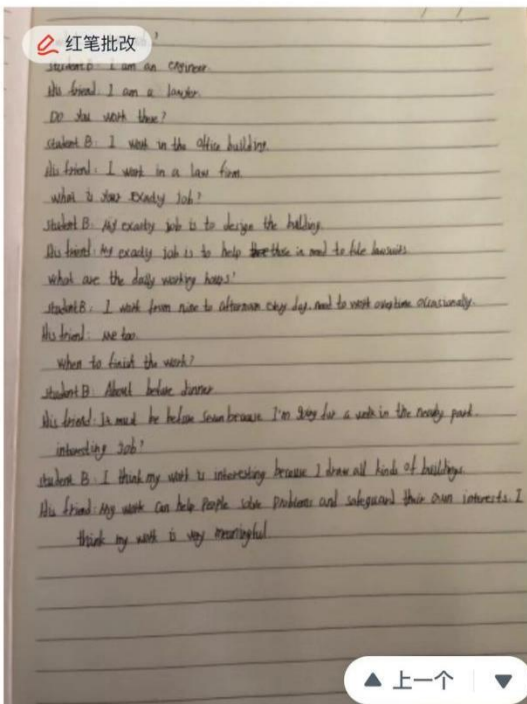 红笔批改 ?
Student B: I am an engineer.
His friend: I am a lawyer.
Do you work there?
Student B: I work in the office building.
His friend: I work in a law firm.
what is your exactly job?
Student B: My exactly job is to design the building.
His friend: My exactly job is to help those in need to file lawsuits.
what are the daily working hours?
Student B: I work from nine to afternoon day, need to work overtime occasionally.
His friend: me too.
When to finish the work?
Student B: About before dinner
His friend: It must be before seven because I'm going for a walk in the nearby park.
interesting job?
Student B: I think my work is interesting because I draw all kinds of buildings.
His friend: My work can help people solve problems and safeguard their own interests. I
think my work is very meaningful.
上一个